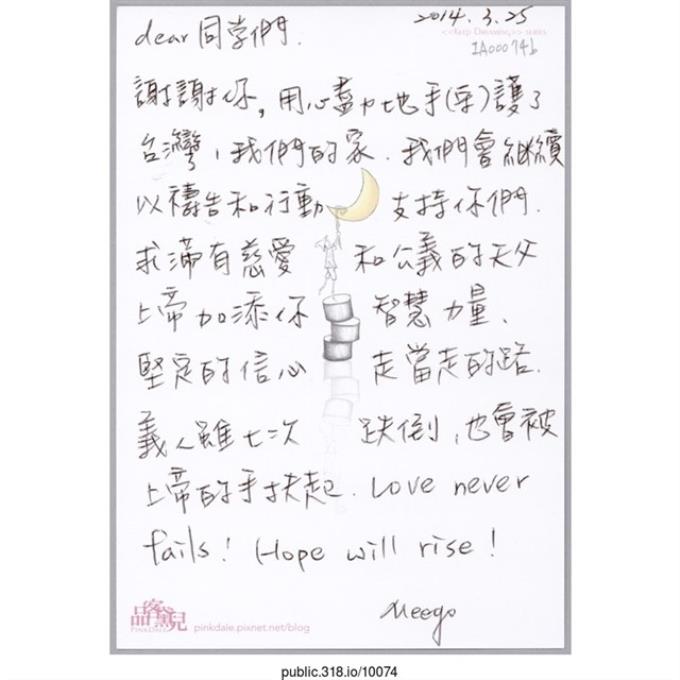 2014.3.25
<<KEEP DREAMING>> SERIES
IA00074b
dear 同学們.
謝謝你, 用心盡力地手(守)護了
台灣，我們的家. 我們會繼續
以禱告和行動 支持你們.
求滿有慈愛 和公義的天父
上帝加添你 智慧力量、
堅定的信心 走當走的路.
義人雖七次 跌倒，也會被
上帝的手扶起. Love never
fails! Hope will rise!
Meego
品客黛兒
PINKDALE
pinkdale.pixnet.net/blog
public.318.io/10074